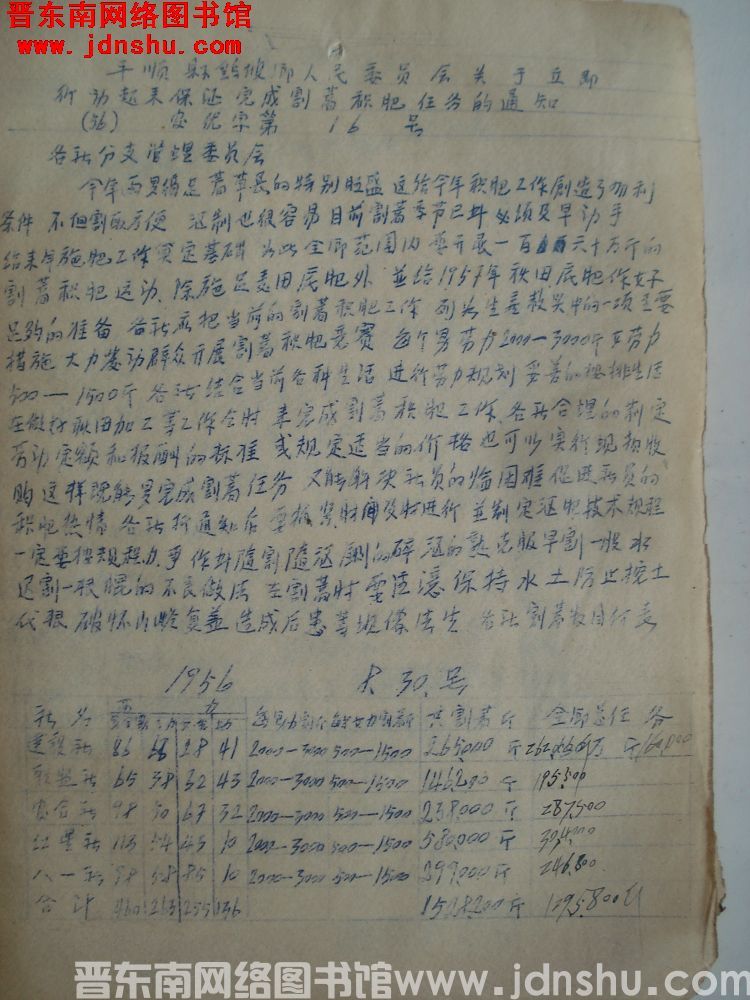 晋东南网络图书馆
www.jdnshu.com
平顺县 乡人民委员会关于立即
行动起来保证完成割蒿积肥任务的通知
(56) 字第 16 号
各社分支管理委员会
今年雨 是蒿草长的特别旺盛 这给今年积肥工作创造了 利
条件 不但割取方便 沤制也很容易目前割蒿季节已 必须及早动手
给来年施肥工作奠定基础 为此全乡范围内 开展一百 六十万斤的
割蒿积肥运动 除施足麦田底肥外 並给1957年秋田底肥作好
足够的准备 各社应把当前的割蒿积肥工作 列为生产 中的一项主要
措施 大力发动群众开展割蒿积肥竞赛 每个男劳力2000—3000斤女劳力
500—1500斤 各社结合当前各种生活 进行劳力规划 妥善的安排生活
在做好秋田加工等工作全时 来完成割蒿积肥工作 各社合理的制定
劳动定额和报酬的标准 或规定适当的价格也可以实行现款收
购这样既能 完成割蒿任务 又能解决社员的 困难促进社员的
积肥热情 各社接通知后 要抓紧时间及时进行 並制定沤肥技术规程
一定要按规程办事 作到随割随沤 的碎 沤的熟克服早割一股水
迟割一股棍的不良做法 在割蒿时要注意保持水土防止挖土
代根 破坏山 造成后患 等现象 生 各社割蒿数目付表
1956 8. 30. 号
社名 男 女 共割蒿斤 全乡总任务
建设社 86 68 28 41 2000—3000 500—1500 265,000 斤
联盟社 65 38 32 43 2000—3000 500—1500 146200 斤 195,500
98 50 67 32 2000—3000 500—1500 238,000 斤 287,500
红星社 113 54 45 10 2000—3000 500—1500 580,000 斤
八一社 98 58 85 10 2000—3000 500—1500 299,000 斤 246,800
合计 460 263 255 136 1508,200 斤
晋东南网络图书馆 www.jdnshu.com